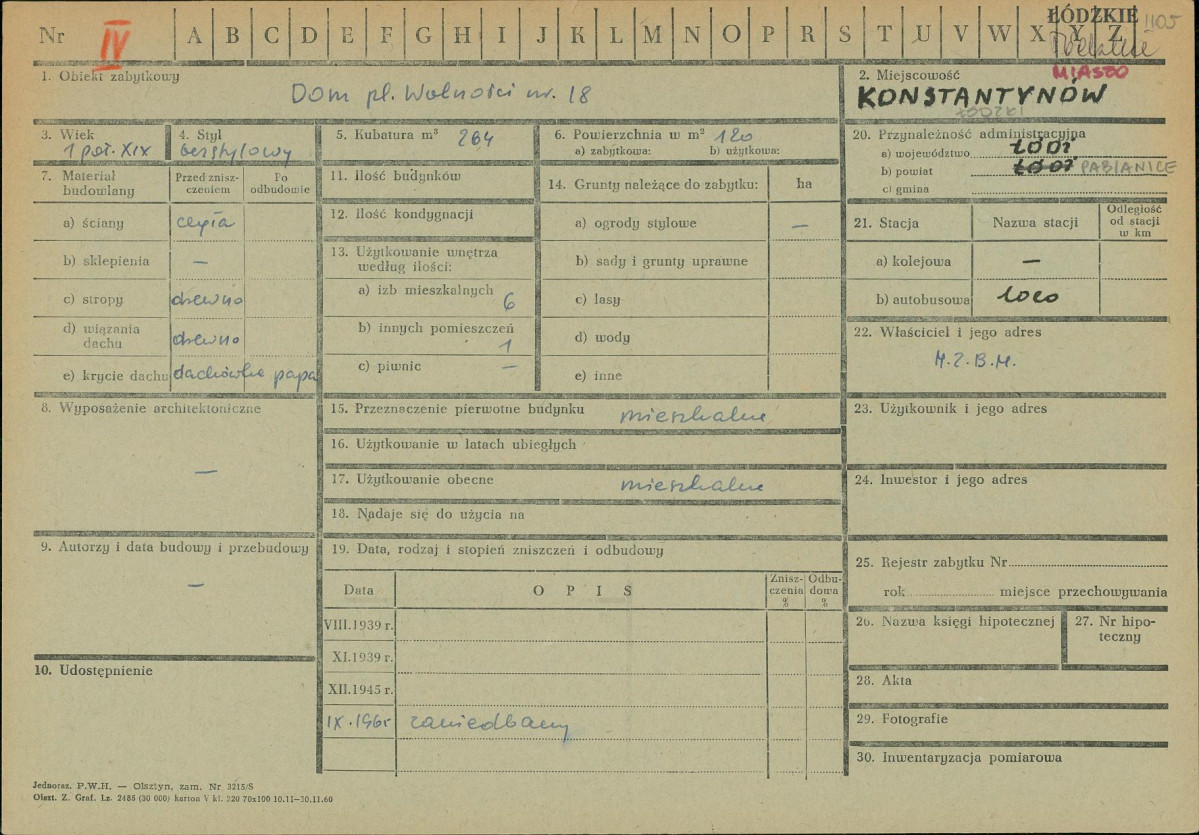 Nr IV A B C D E F G H I J K L M N O P R S T U V W X Y Z
ŁÓDZKIE 1105
MIASTO
1. Obiekt zabytkowy
Dom pl. Wolności nr. 18
2. Miejscowość
KONSTANTYNÓW
ŁÓDZKI
3. Wiek
1 poł. XIX
4. Styl
bezstylowy
5. Kubatura m³ 264
6. Powierzchnia w m² 120
a) zabytkowa: b) użytkowa:
20. Przynależność administracyjna
a) województwo ŁÓDŹ
b) powiat ŁÓDŹ PABIANICE
c) gmina
7. Materiał budowlany
Przed znisz-
czeniem
Po
odbudowie
a) ściany cegła
b) sklepienia —
c) stropy drewno
d) wiązania
dachu drewno
e) krycie dachu dachówka papa
11. Ilość budynków
12. Ilość kondygnacji
13. Użytkowanie wnętrza
według ilości:
a) izb mieszkalnych 6
b) innych pomieszczeń
1
c) piwnic —
14. Grunty należące do zabytku: ha
a) ogrody stylowe —
b) sady i grunty uprawne
c) lasy
d) wody
e) inne
21. Stacja Nazwa stacji
Odległość
od stacji
w km
a) kolejowa —
b) autobusowa loco
22. Właściciel i jego adres
M.Z.B.M.
8. Wyposażenie architektoniczne
—
15. Przeznaczenie pierwotne budynku mieszkalne
16. Użytkowanie w latach ubiegłych
17. Użytkowanie obecne mieszkalne
18. Nadaje się do użycia na
23. Użytkownik i jego adres
24. Inwestor i jego adres
9. Autorzy i data budowy i przebudowy
—
19. Data, rodzaj i stopień zniszczeń i odbudowy
Data O P I S
Znisz-
czenia
%
Odbu-
dowa
%
VIII.1939 r.
XI.1939 r.
XII.1945 r.
IX.1965 zaniedbany
25. Rejestr zabytku Nr
rok miejsce przechowywania
26. Nazwa księgi hipotecznej
27. Nr hipo-
teczny
10. Udostępnienie
28. Akta
29. Fotografie
30. Inwentaryzacja pomiarowa
Jednoraz. P.W.H. — Olsztyn, zam. Nr 3215/S
Olszt. Z. Graf. Lz. 2485 (30 000) karton V kl. 220 70x100 10.11—30.11.60